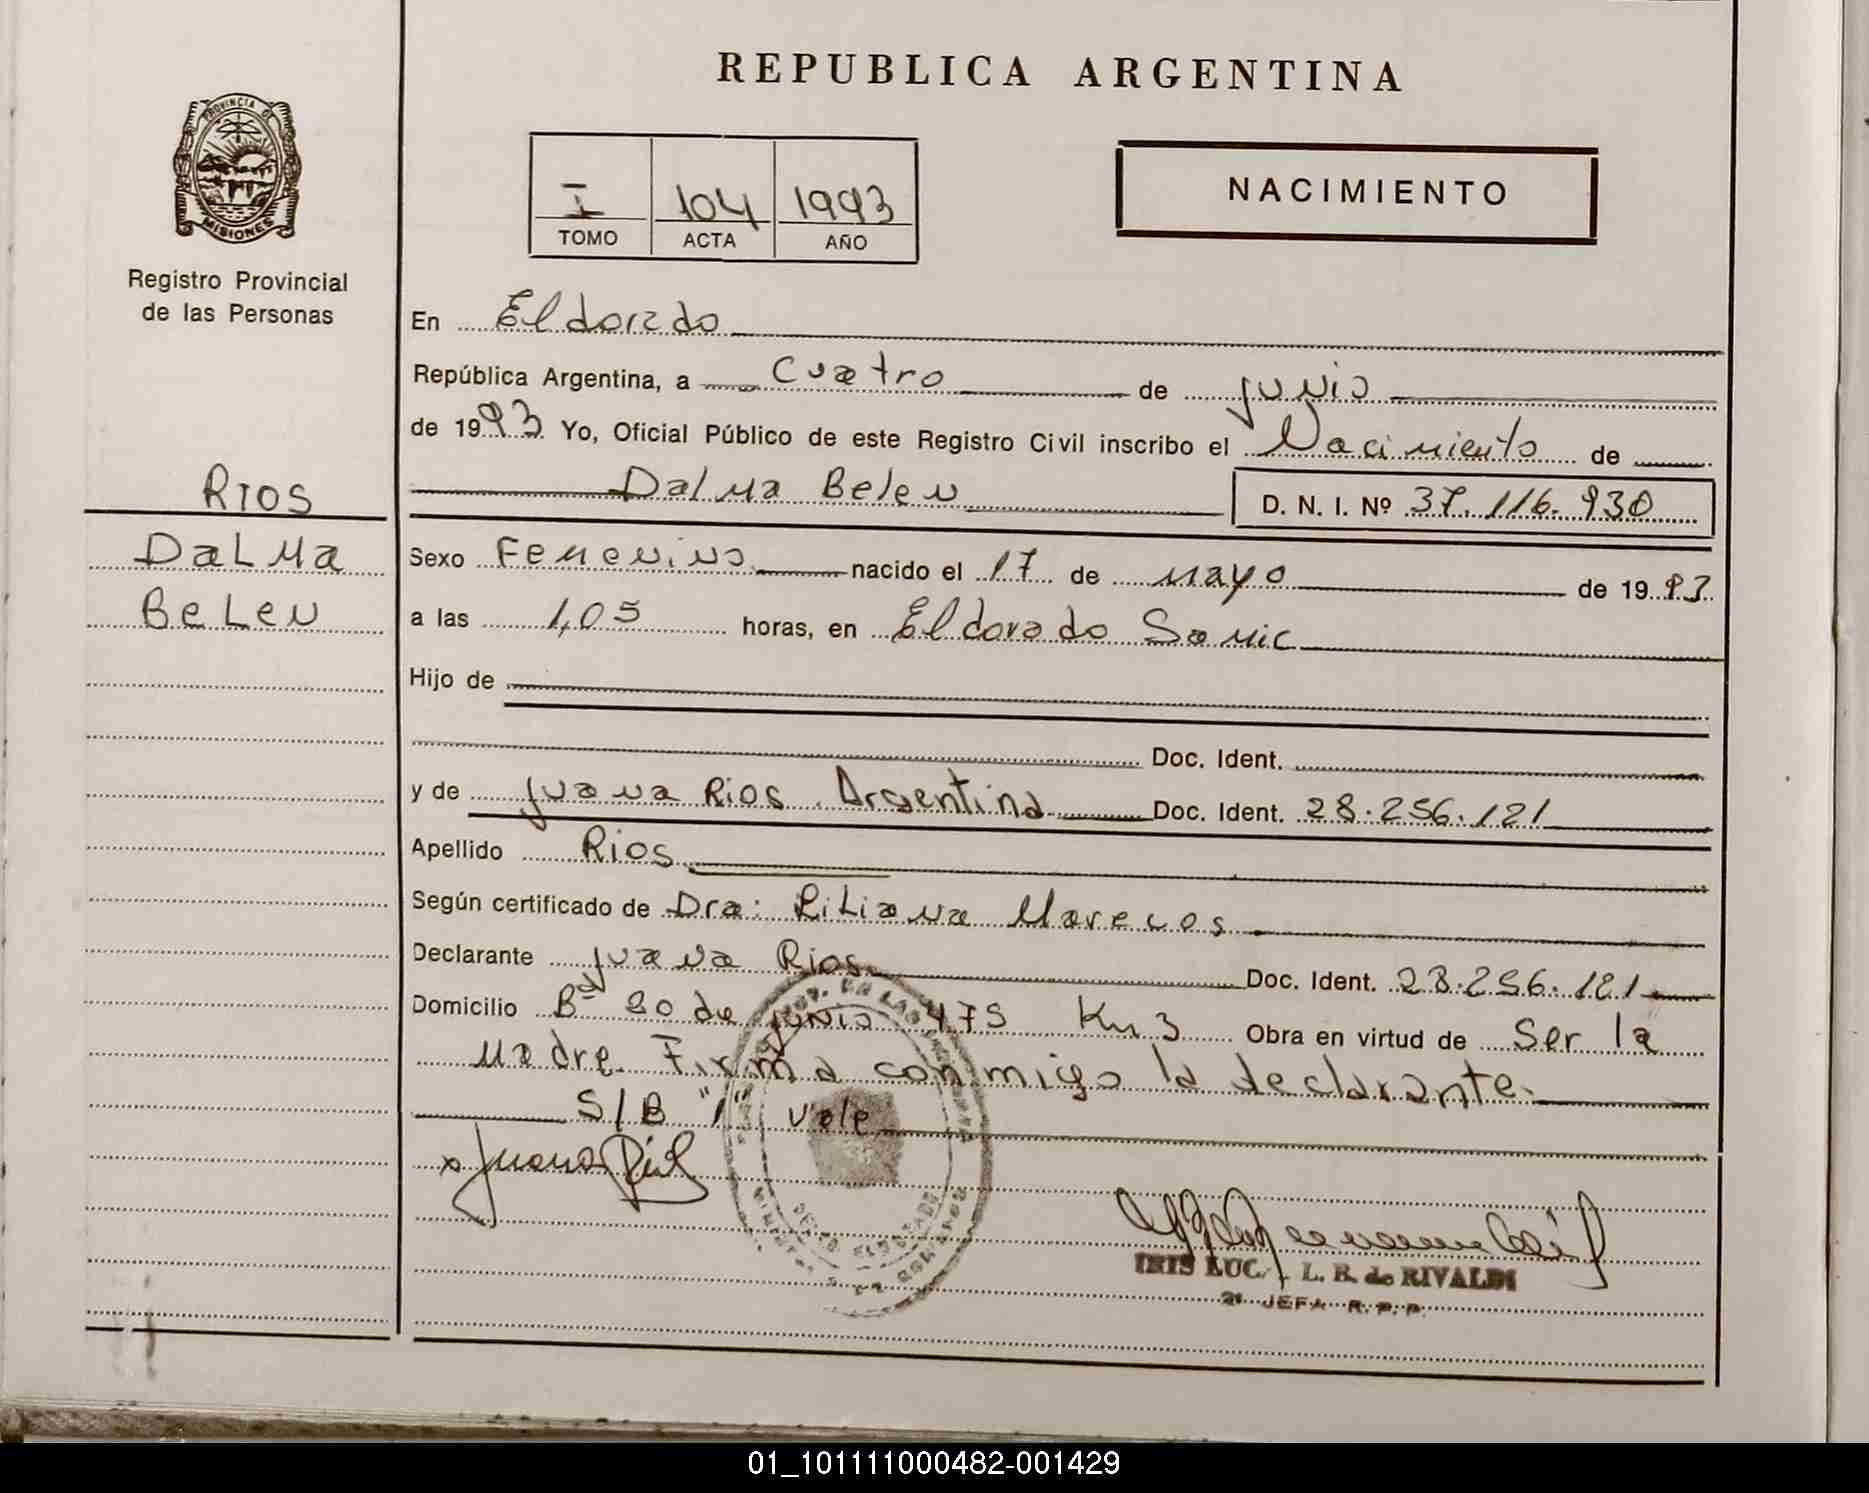 REPUBLICA ARGENTINA
PROVINCIA D
MISIONES
Registro Provincial
de las Personas
I 104 1993
TOMO ACTA AÑO
NACIMIENTO
RIOS
DALMA
BELEN
En Eldorado
República Argentina, a Cuatro de junio
de 1993 Yo, Oficial Público de este Registro Civil inscribo el Nacimiento de
Dalma Belen D. N. I. Nº 37.116.930
Sexo Femenino nacido el 17 de mayo de 1993
a las 1,05 horas, en Eldorado Samic
Hijo de
Doc. Ident.
y de Juana Rios Argentina Doc. Ident. 28.256.121
Apellido Rios
Según certificado de Dra: Liliana Marecos
Declarante Juana Rios Doc. Ident. 28.256.121
Domicilio Bº 20 de junio 475 Km 3 Obra en virtud de Ser la
Madre Firma conmigo la declarante
S/B "1" Vale
x Juana Rios
L. B. de RIVALDI
2ª JEFA R. P. P.
01_101111000482-001429